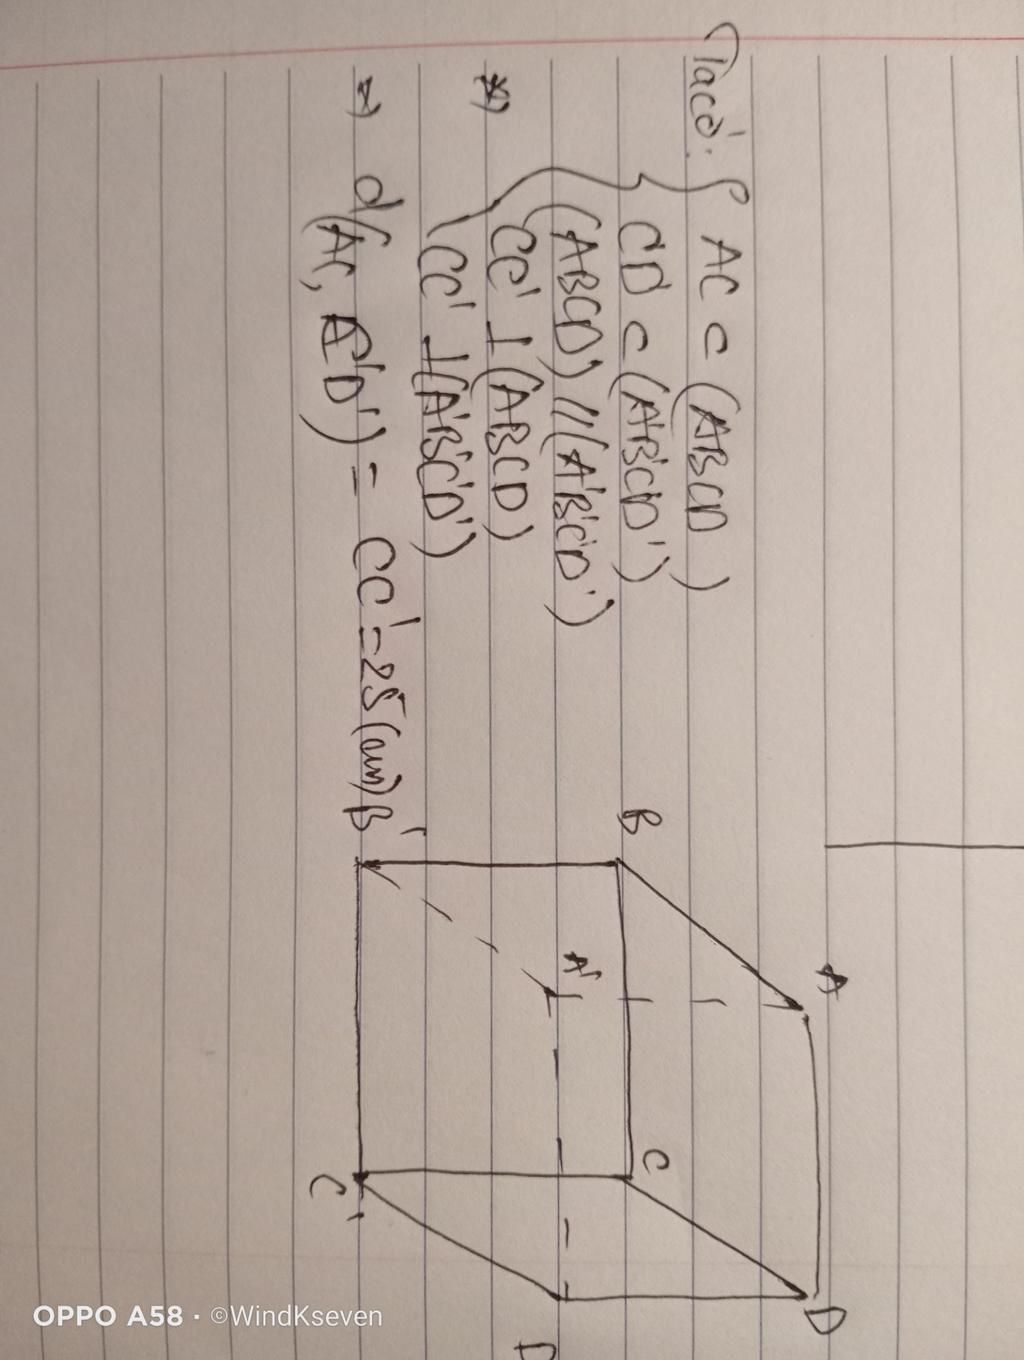 Ta có: { AC ⊂ (ABCD)
CD ⊂ (A'B'C'D')
(ABCD) // (A'B'C'D')
CC' ⊥ (ABCD)
CC' ⊥ (A'B'C'D')
=> d(AC, C'D') = CC' = 25 (cm)
A
D
B
C
A'
B'
C'
D
OPPO A58 · ©WindKseven